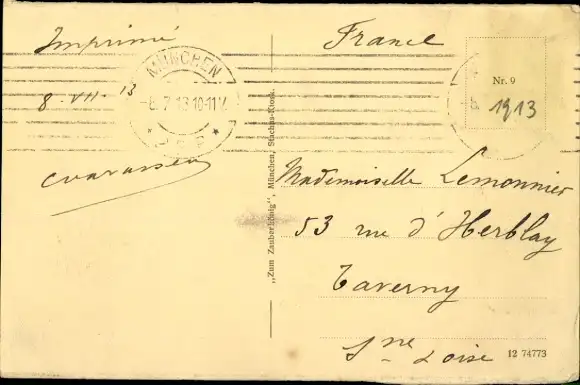 Imprimé
France
MÜNCHEN
-8.7.13.10-11V.
8-VII-13
Nr. 9
1913
Mademoiselle Lemonnier
53 rue d'Herblay
Taverny
Sne Loise
„Zum Zauberkönig“, München, Stachus-Kiosk.
12 74773